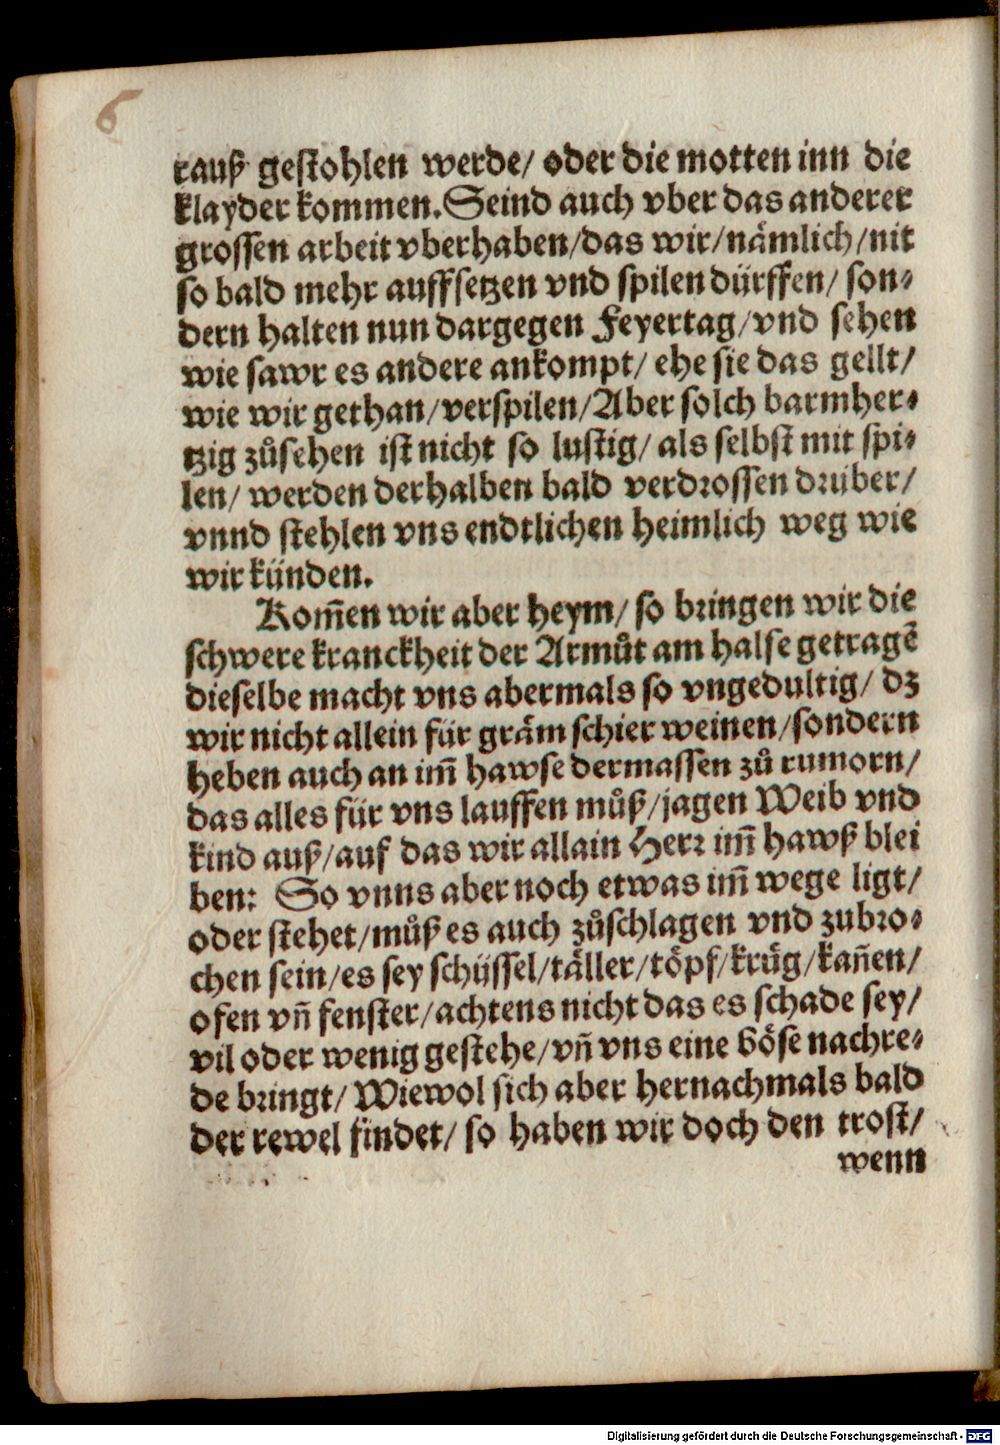 6
rauß gestohlen werde/ oder die motten inn die
klayder kommen. Seind auch vber das anderer
grossen arbeit vberhaben/das wir/nämlich/nit
so bald mehr auffsetzen vnd spilen dürffen/ son⸗
dern halten nun dargegen Feyertag/vnd sehen
wie sawr es andere ankompt/ ehe sie das gellt/
wie wir gethan/verspilen/Aber solch barmher⸗
tzig zůsehen ist nicht so lustig/ als selbst mit spi⸗
len/ werden derhalben bald verdrossen drüber/
vnnd stehlen vns endtlichen heimlich weg wie
wir künden.
Kom̃en wir aber heym/ so bringen wir die
schwere kranckheit der Armůt am halse getragẽ
dieselbe macht vns abermals so vngedultig/ dz
wir nicht allein für gräm schier weinen/sondern
heben auch an im̃ hawse dermassen zů rumorn/
das alles für vns lauffen můß/jagen Weib vnd
kind auß/auf das wir allain Herr im̃ hawß blei
ben: So vnns aber noch etwas im̃ wege ligt/
oder stehet/můß es auch zůschlagen vnd zubro⸗
chen sein/es sey schüssel/täller/töpf/krüg/kañen/
ofen vñ fenster/achtens nicht das es schade sey/
vil oder wenig gestehe/vñ vns eine böse nachre⸗
de bringt/ Wiewol sich aber hernachmals bald
der rewel findet/ so haben wir doch den trost/
wenn
Digitalisierung gefördert durch die Deutsche Forschungsgemeinschaft - DFG